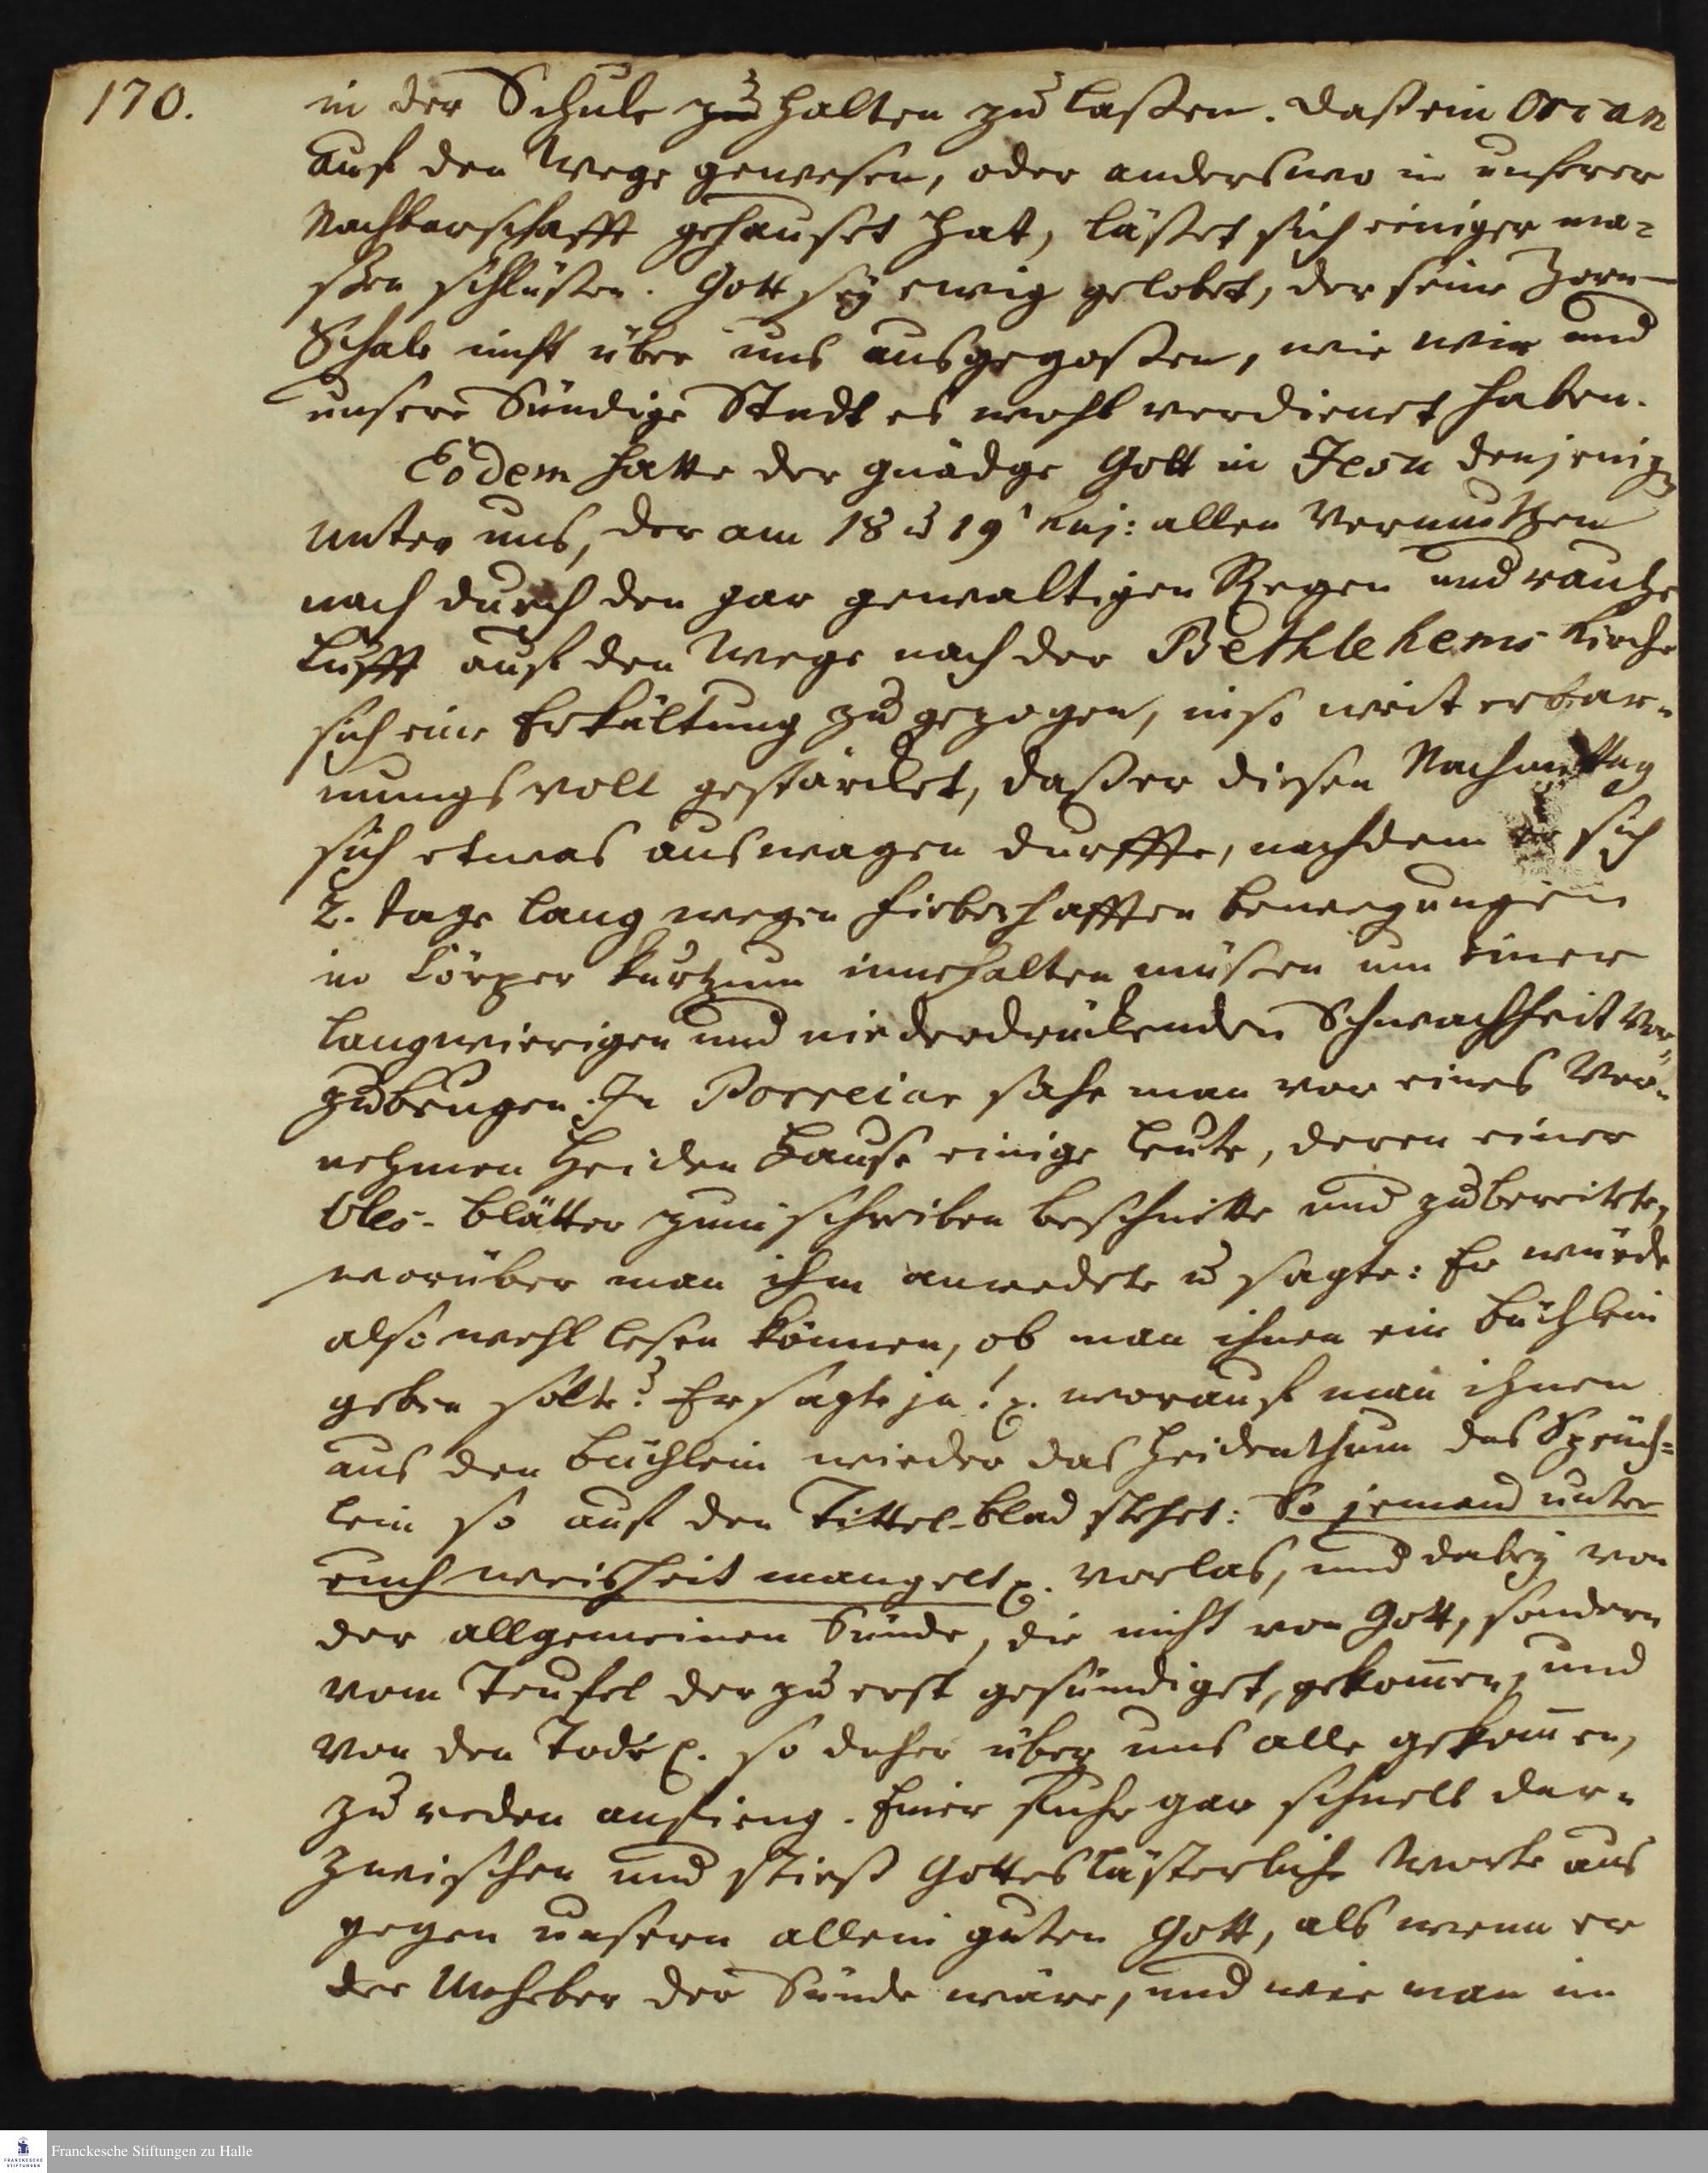 170.
in der Schule zu halten zu laßen. Daß ein Orcan
auf den Wege gewesen, oder anderswo in unserer
Nachbarschafft gehauset hat, läßet sich einiger ma-
ßen schlüßen. Gott sey ewig gelobet, der seine Zorn-
Schale nicht über uns ausgegoßen, wie wir und
unsere Sündige Stadt es wohl verdienet haben.
Eodem hatte der gnädge Gott in Jesu denjenigen
unter uns, der am 18 u 19 huj: allen Vermuthen
nach durch den gar gewaltigen Regen und rauhe
Lufft auf den Wege nach der Bethlehems Kirche
sich eine Erkältung zu gezogen, in so weit erbar-
mungsvoll gestärcket, daß er diesen Nachmittag
sich etwas auswagen durffte, nachdem er sich
2. Tage lang wegen fieberhafften bewegungen
im Cörper kurtzum innehalten müßen um einer
langwierigen und niederdrückenden Schwachheit vor-
zubeugen. In Porreiar sahe man vor eines Vor-
nehmen Heiden Hause einige Leute, deren einer
Oles-blätter zum schreiben beschnitte und zubereitete,
worüber man ihm anredete u sagte: Er würde
also wohl lesen können, ob man ihnen ein büchlein
geben solte? Er sagte ja! p. worauf man ihnen
aus den büchlein wieder das Heidenthum das Sprüch-
lein so auf den Tittel-blad stehet: So jemand unter
euch weisheit mangelt p. vorlas, und dabey von
der allgemeinen Sünde, die nicht von Gott, sondern
vom Teufel der zu erst gesündiget, gekommen, und
von den Tode p. so daher über uns alle gekommen,
zu reden anfieng. Einer fuhr gar schnell dar-
zwischen und stieß Gotteslästerliche Worte aus
gegen unsern allein guten Gott, als wenn er
der Urheber der Sünde wäre, und wie man im
Franckesche Stiftungen zu Halle